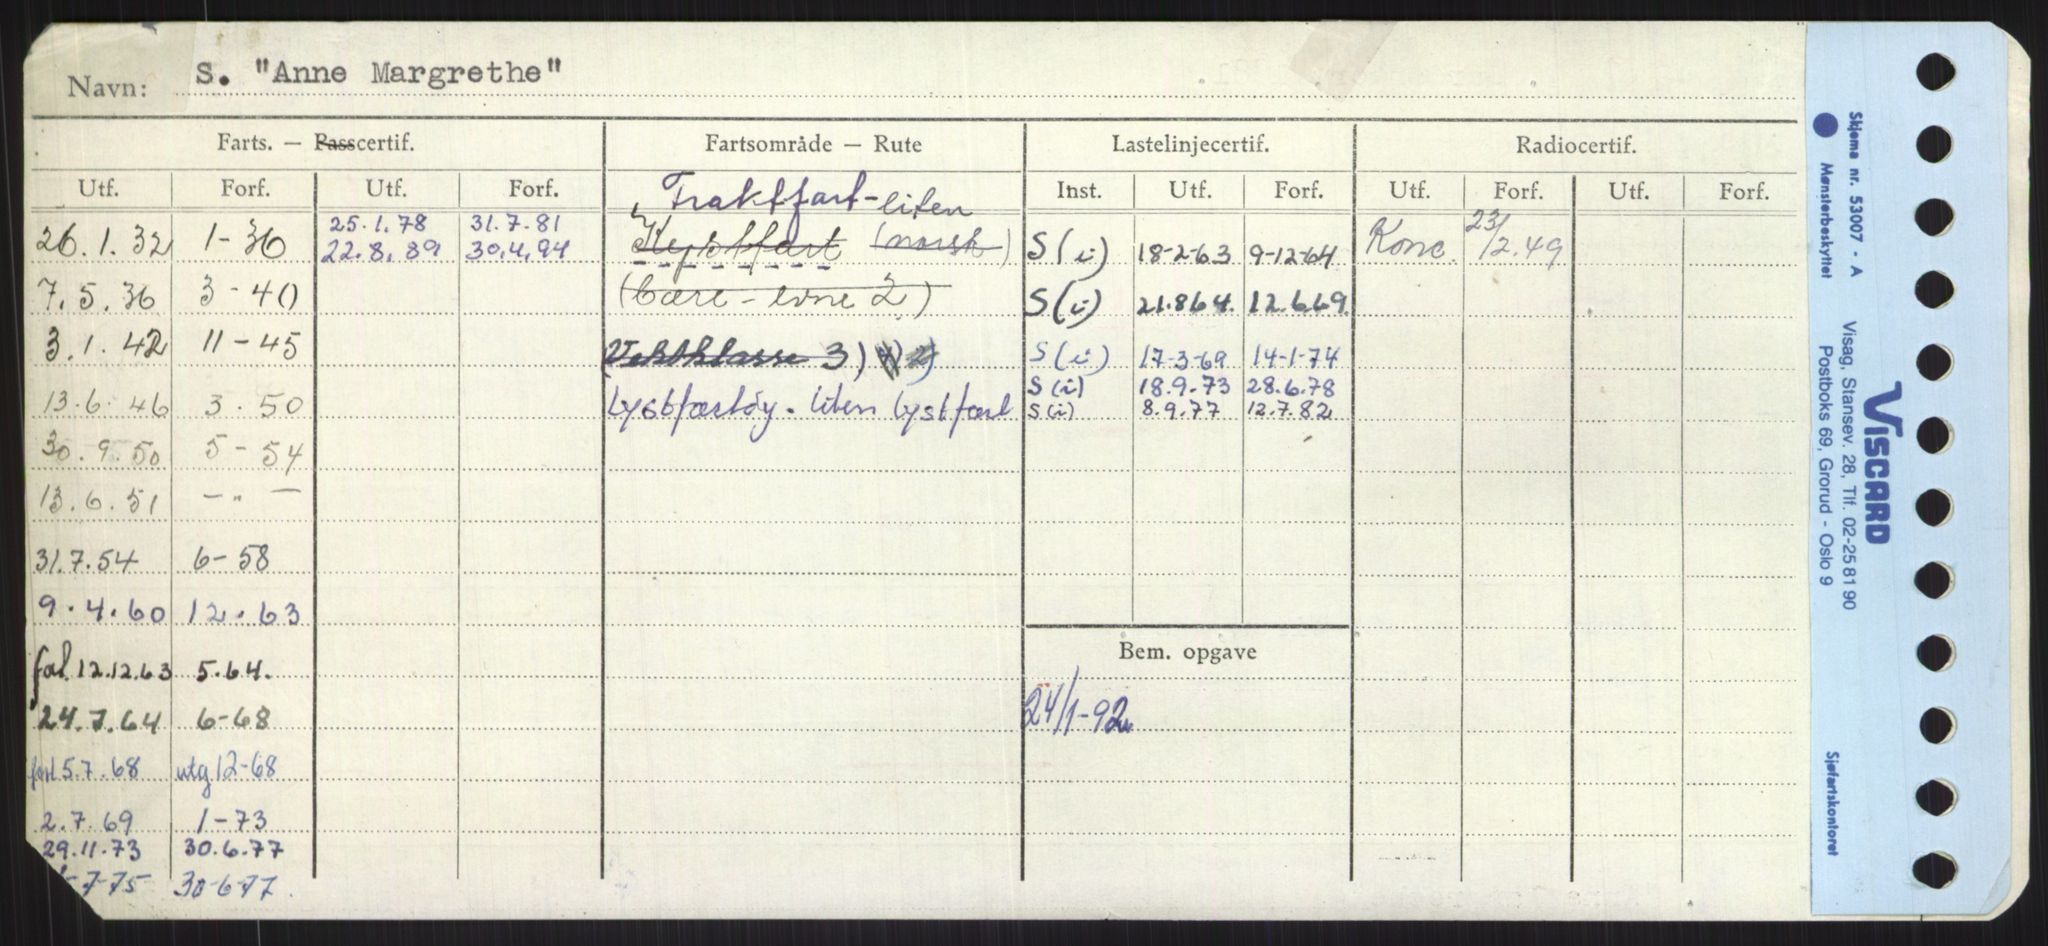 Navn: S. "Anne Margrethe"
Farts. — Passcertif. Fartsområde — Rute Lastelinjecertif. Radiocertif.
Utf. Forf. Utf. Forf. Fraktfart-liten Inst. Utf. Forf. Utf. Forf. Utf. Forf.
26.1.32 1-36 25.1.78 31.7.81 Kystfart (norsk) S(i) 18-2-63 9-12-64 Konc. 23/2.49
22.8.89 30.4.94
7.5.36 3-40 (bære-evne 2) S(i) 21.8.64. 12.6.69
3.1.42 11-45 3) 2) S(i) 17-3-69 14-1-74
S(i) 18.9.73 28.6.78
13.6.46 3.50 Lystfartøy. liten lystfart S(i) 8.9.77 12.7.82
30.9.50 5-54
13.6.51 — " —
31.7.54 6-58
9.4.60 12.63
Bem. opgave
12.12.63 5.64.
24.7.64 6-68 24/1-92
5.7.68 utg 12-68
2.7.69 1-73
29.11.73 30.6.77
-7-75 30-6-77.
Skjema nr. 53007 - A
Mønsterbeskyttet
VISCARD
Visag, Stansev. 28, Tlf. 02-25 81 90
Postboks 69, Grorud - Oslo 9
Sjøfartskontoret